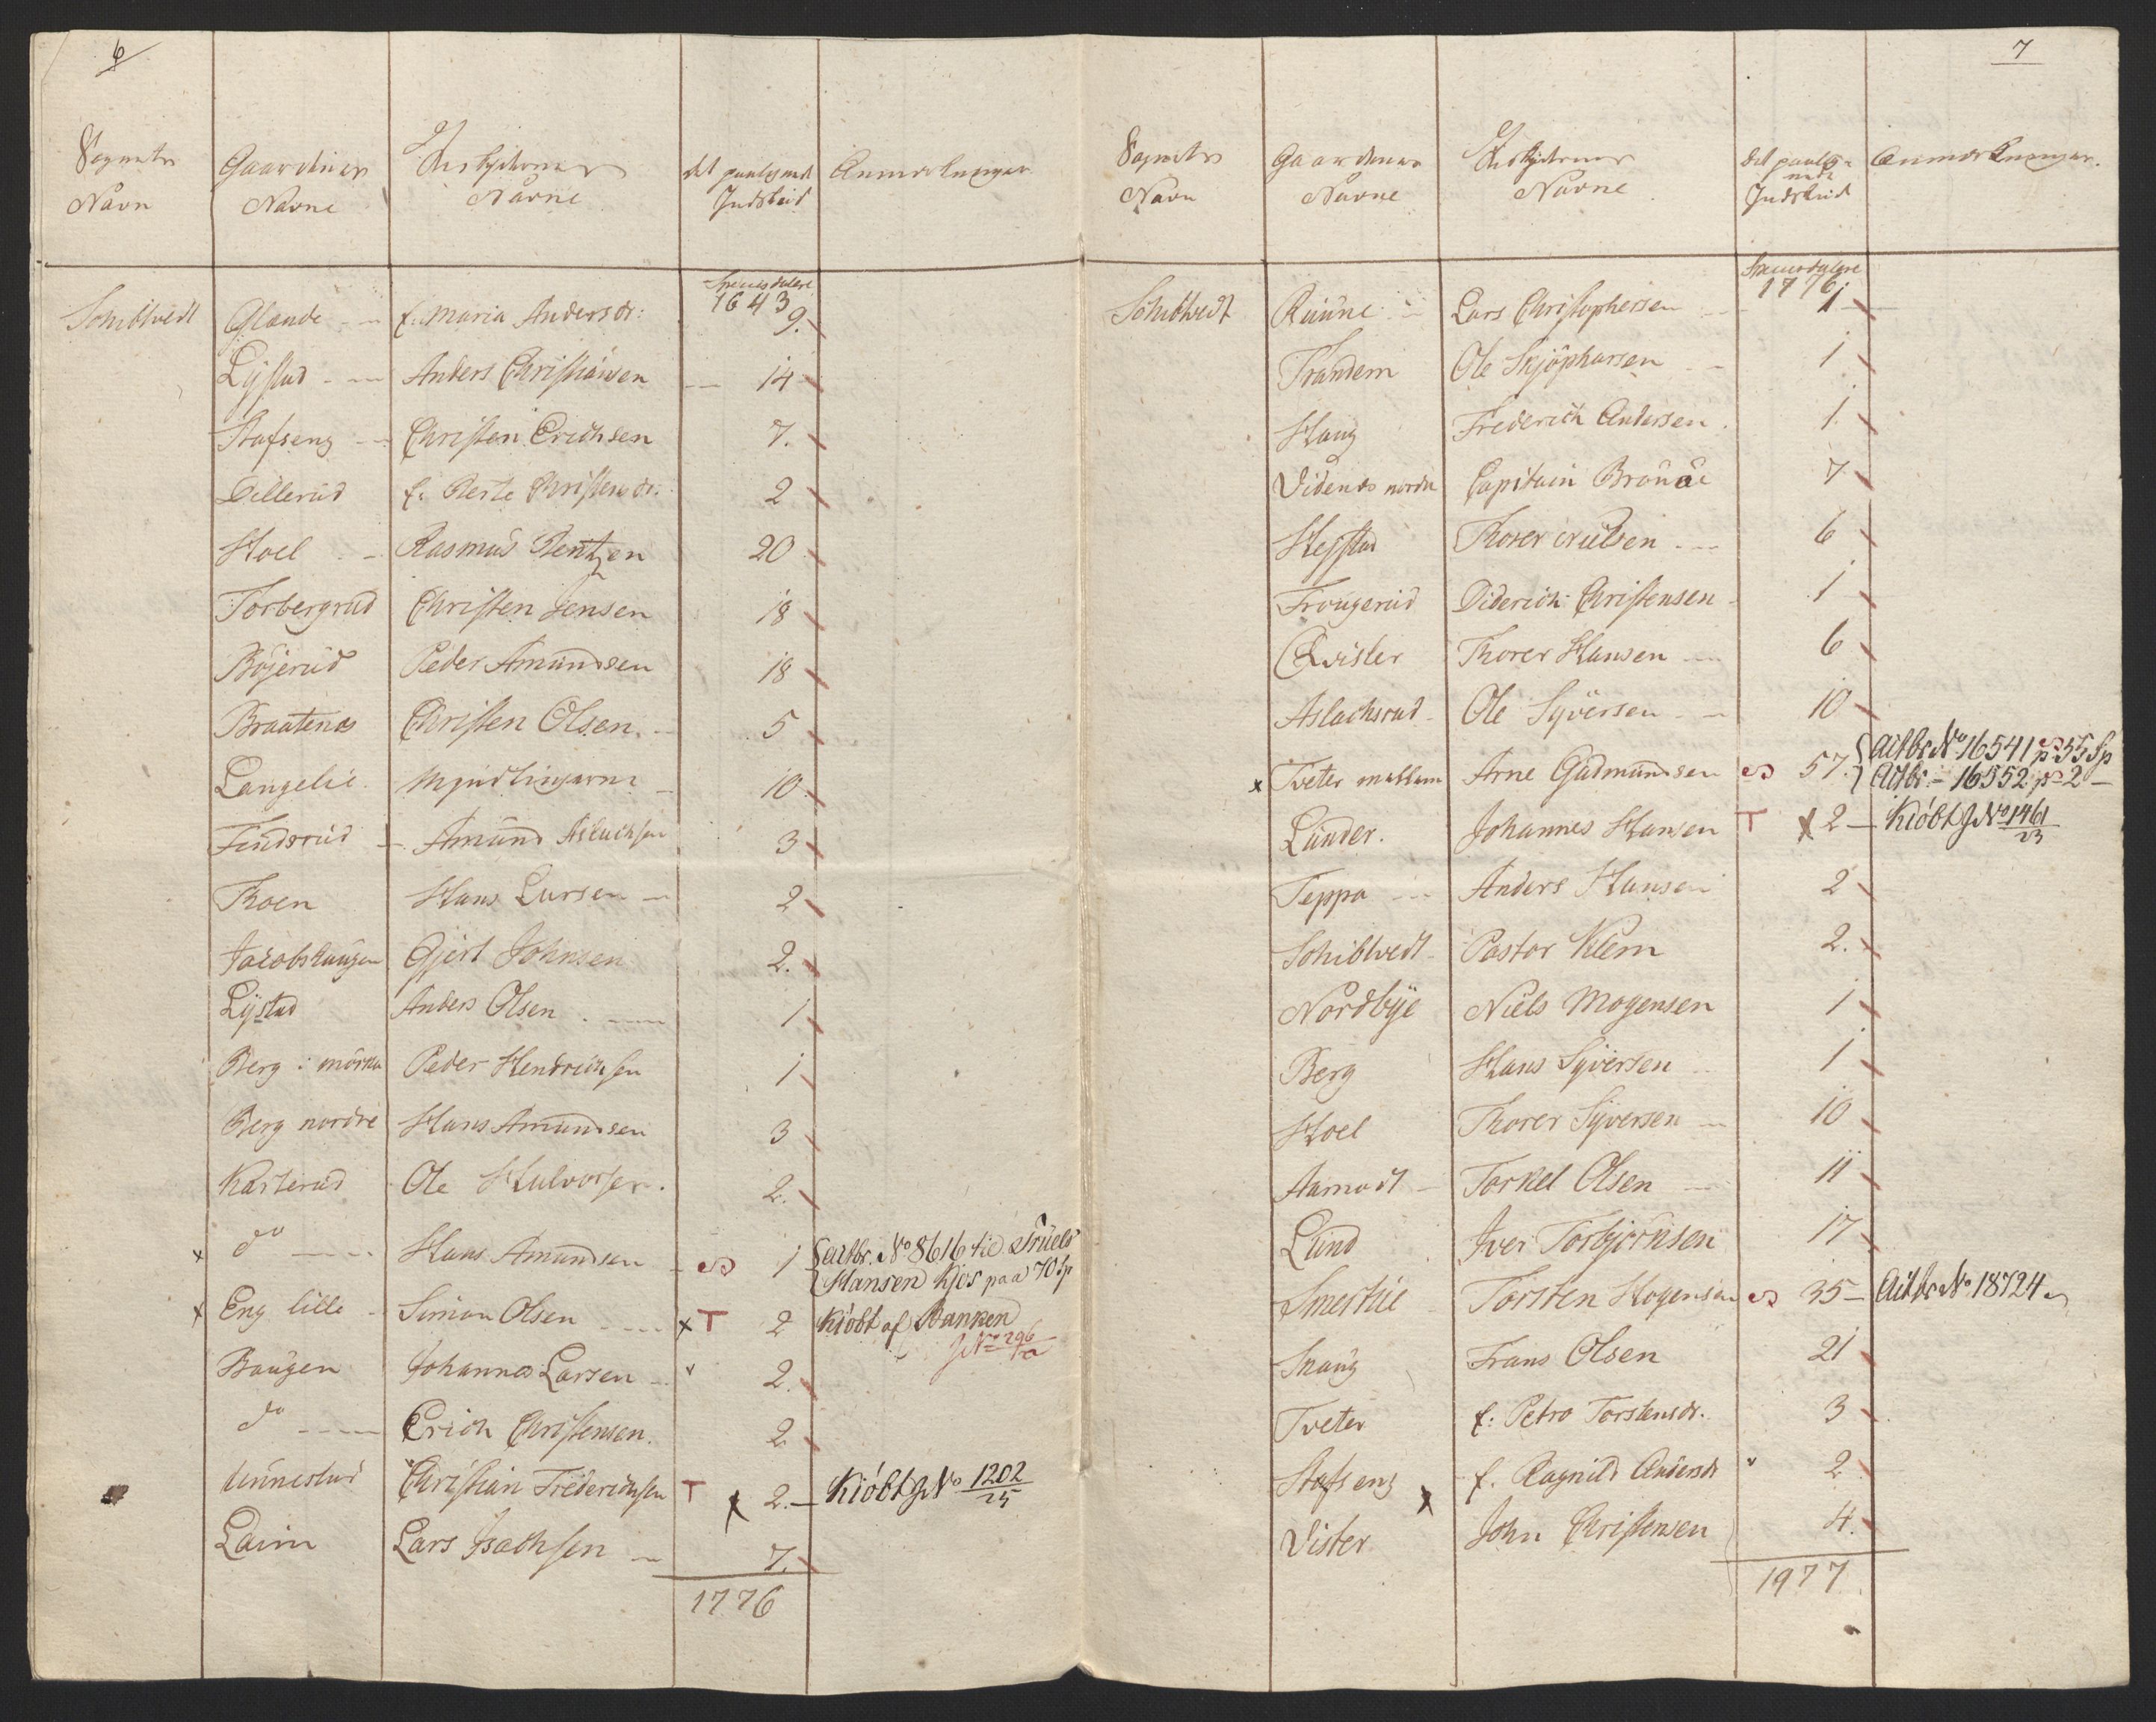 6
Sognets Navn | Gaardenes Navne | Indskydernes Navne | det paalignede Indskud | Anmærkninger
Speciesdaler
1643
Schibtvedt | Glende | E: Maria Andersdr: | 9.
Lystad | Anders Christiansen | 14
Stafseng | Christen Erichsen | 7.
Dillerud | E: Berte Christensdr: | 2
Hoel | Rasmus Bentzen | 20
Torbergrud | Christen Jensen | 18
Böjerud | Peder Amundsen | 18
Braatenes | Christen Olsen | 5
Langelie | Myndlingerne | 10
Findsrud | Amund Aslachsen | 3
Moen | Hans Larsen | 2
Jacobshaugen | Gjert Johnsen | 2.
Lystad | Anders Olsen | 1
Berg i mörken | Peder Hendrichsen | 1
Berg nordre | Hans Amundsen | 3
Kasterud | Ole Halvorsen | 2.
x do | Hans Amundsen | 1 | Actbr. No 8616 til Truels
Hansen Kjos paa 70 Sp
x Eng lille | Simon Olsen | x T 2 | Kióbt af Banken
J No 296
Baugen | Johannes Larsen | 2.
do | Erich Christensen. | 2
Unnestad | Christian Frederichsen | T x 2. | Kióbt J No 1202/25
Laim | Lars Isachsen | 7.
1776
7
Sognets Navn | Gaardenes Navne | Indskydernes Navne | det paalignede Indskud | Anmærkninger.
Speciesdaler
1776
Schibtvedt | Ruune | Lars Christophersen | 1
Trandem | Ole Skjöphorsen | 1
Haug | Frederich Andersen | 1.
Videnes nordre | Capitain Braune | 7
Hegstad | Thorer Nielsen | 6
Trougerud | Diderich Christensen | 1
Qvister | Thorer Hansen | 6
Aslachsrud | Ole Syversen | 10
x Tveter mellem | Arne Gudmundsen | 57. | Actbr No 16541 p 55 Sp
Actbr - 16552 p 2 -
Lunder. | Johannes Hansen | T x 2 | Kióbt J No 1461/23
Teppa | Anders Hansen | 2
Schibtvedt | Pastor Klem | 2.
Nordbye | Niels Mogensen | 1
Berg | Hans Syversen | 1
Hoel | Thorer Syversen | 10
Aamodt | Torkel Olsen | 11
Lund | Iver Torbjörnsen | 17
Smerthie | Torsten Hogensen | 35 | Actbr No 18724
Skaug | Frans Olsen | 21
Tveter | E: Petro Torstensdr. | 3
Stafseng | E. Ragnild Andersdr | 2
Vister | x John Christensen | 4.
1977